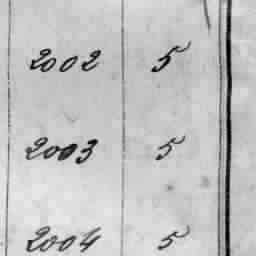 2002 5
2003 5
2004 5